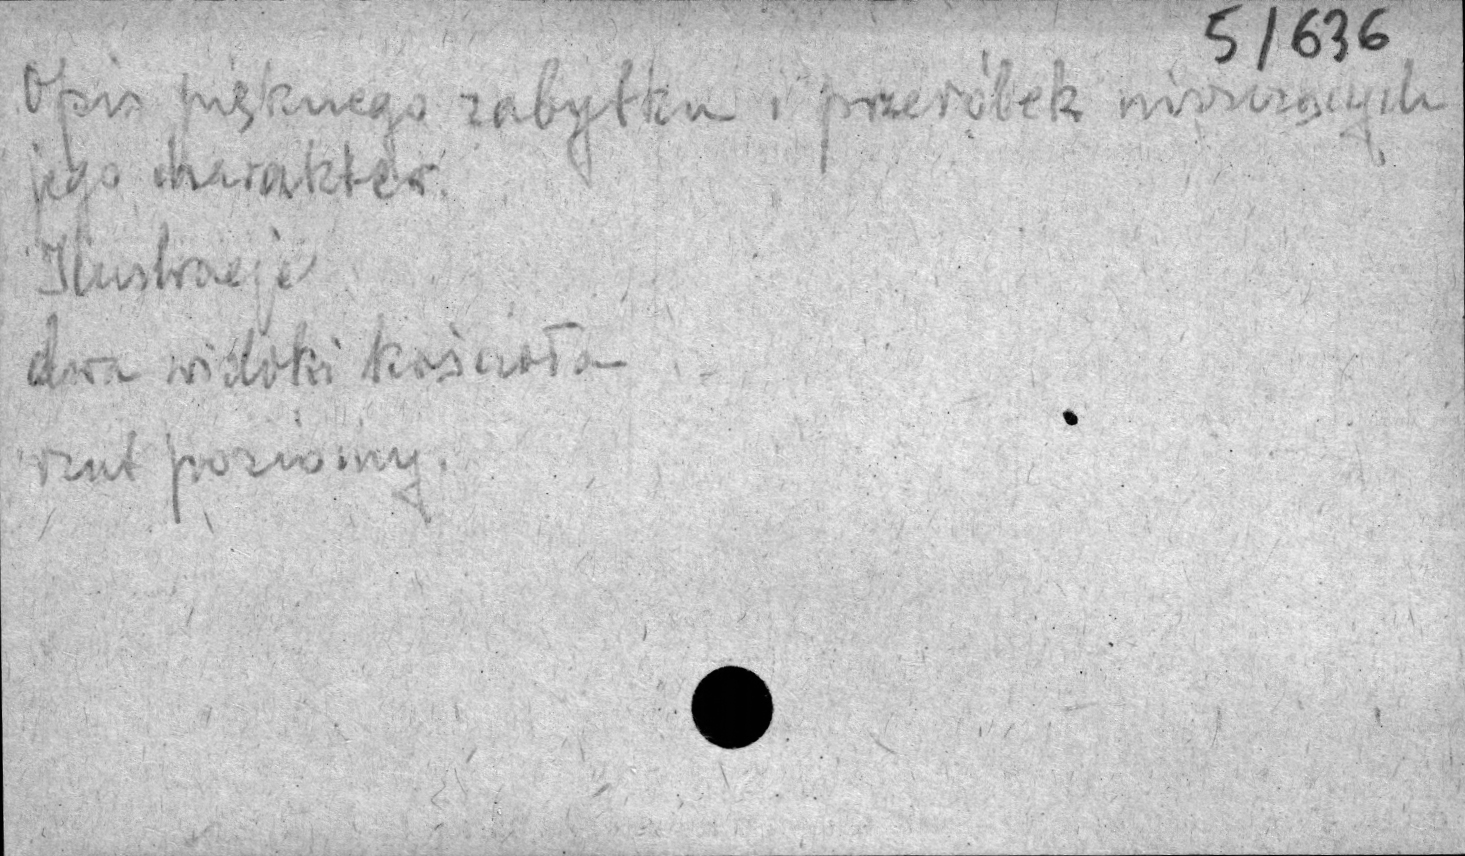 5/636
Opis pięknego zabytku i przeróbek niszczących
jego charakter.
Ilustracje
dwa widoki kościoła
rzut poziomy.